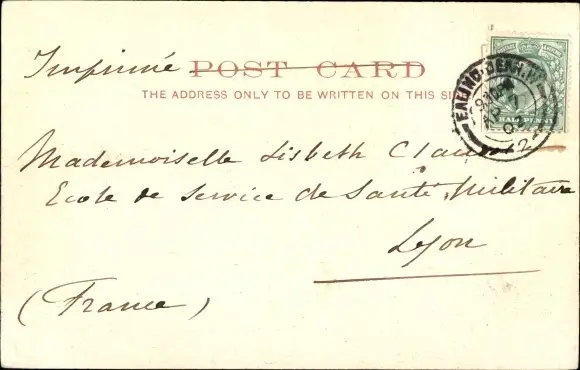 Imprimé POST CARD
THE ADDRESS ONLY TO BE WRITTEN ON THIS SI
EALING
HALF PENNY
Mademoiselle Lisbeth
Ecole de Service de Santé Militaire
Lyon
(France)